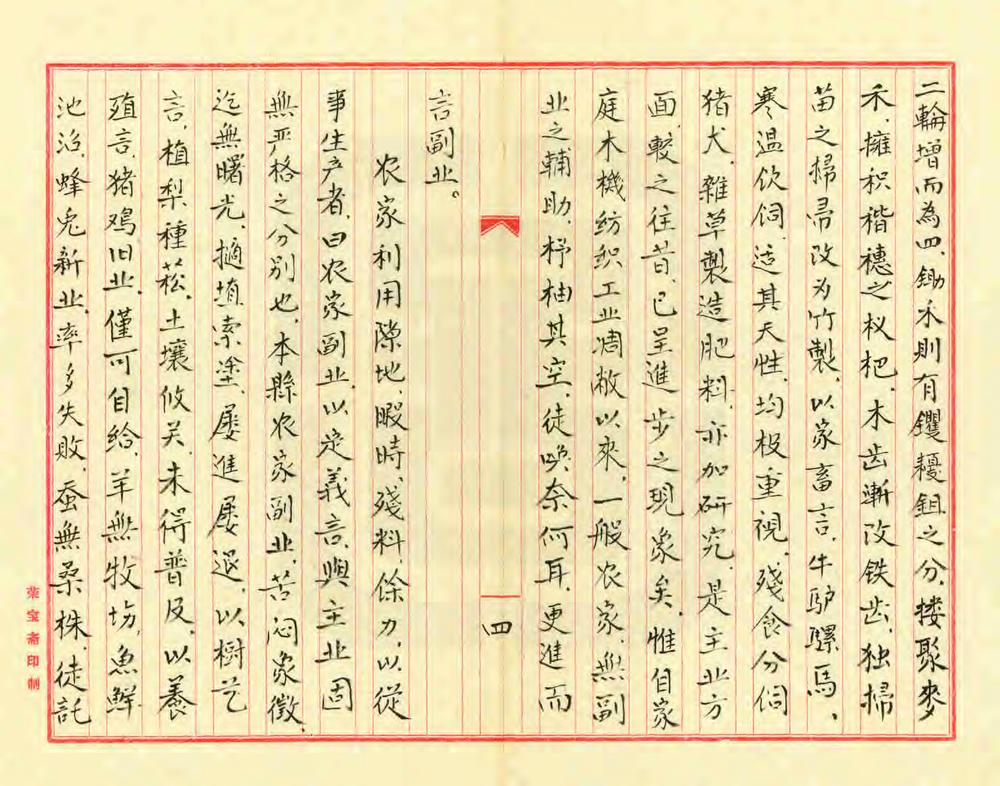 二輪增而為四、鋤禾則有钁耰鉏之分、搂聚麥
禾、擁积稭穗之杈杷、木齿漸改铁齿、独掃
苗之掃帚改为竹製、以家畜言、牛驴騾馬、
寒温饮饲、适其天性、均极重視、残食分饲
猪犬、雜草製造肥料、亦加研究、是主业方
面、較之往昔、已呈進步之現象矣、惟自家
庭木機纺织工业凋敝以來、一般农家、無副
业之輔助、杼柚其空、徒唤奈何耳、更進而
言副业。
农家利用隙地、暇時、殘料、餘力、以從
事生产者、曰农家副业、以定義言、與主业固
無严格之分別也、本縣农家副业、苦闷象徵、
迄無曙光、擿埴索塗、屡進屡退、以樹艺
言、植梨種菘、土壤攸关、未得普及、以養
殖言、猪鸡旧业、僅可自给、羊無牧场、魚鮮
池沼、蜂兎新业、率多失敗、蚕無桑株、徒託
四
荣宝斋印制